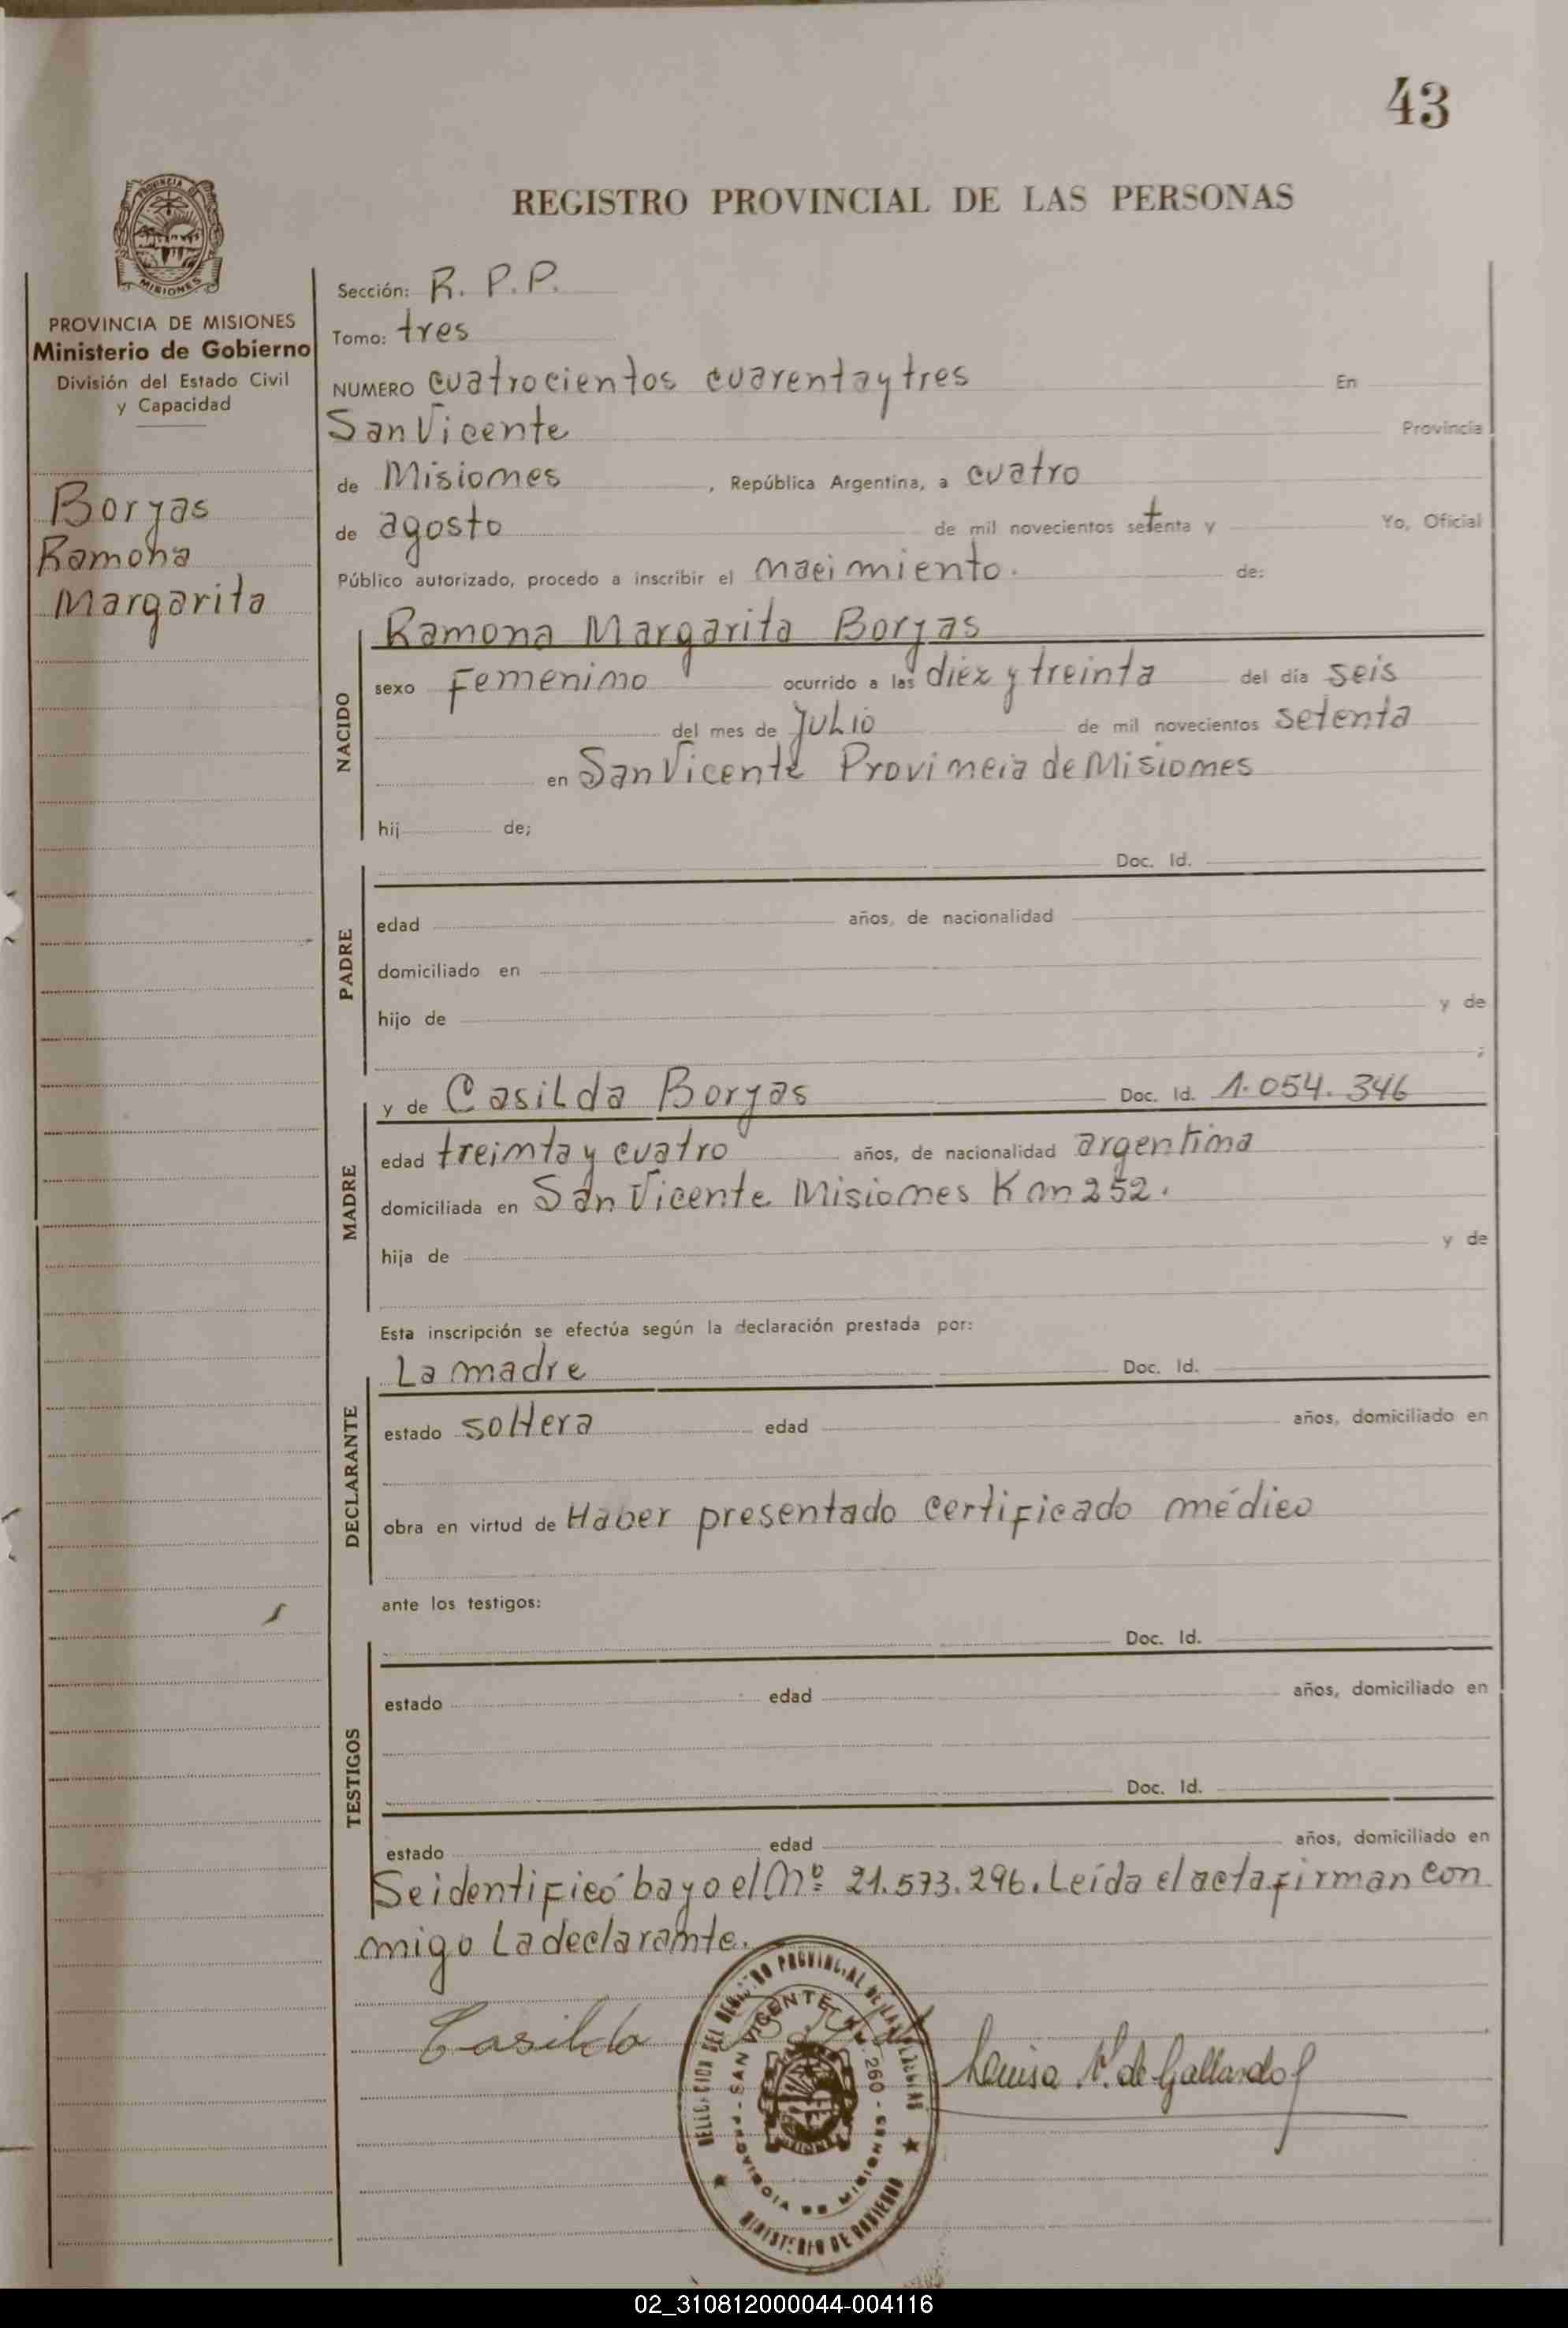 43
PROVINCIA DE
MISIONES
REGISTRO PROVINCIAL DE LAS PERSONAS
PROVINCIA DE MISIONES
Ministerio de Gobierno
División del Estado Civil
y Capacidad
Boryas
Ramona
Margarita
Sección: R. P. P.
Tomo: tres
NUMERO cuatrocientos cuarenta y tres En
San Vicente Provincia
de Misiones , República Argentina, a cuatro
de agosto de mil novecientos setenta y Yo, Oficial
Público autorizado, procedo a inscribir el nacimiento. de:
NACIDO
Ramona Margarita Boryas
sexo Femenino ocurrido a las diez y treinta del día seis
del mes de JULIO de mil novecientos setenta
en San Vicente Provincia de Misiones
hij de;
PADRE
Doc. Id.
edad años, de nacionalidad
domiciliado en
hijo de y de
;
MADRE
y de Casilda Boryas Doc. Id. 1.054.346
edad treinta y cuatro años, de nacionalidad argentina
domiciliada en San Vicente Misiones Km 252.
hija de y de
Esta inscripción se efectúa según la declaración prestada por:
DECLARANTE
La madre Doc. Id.
estado soltera edad años, domiciliado en
obra en virtud de Haber presentado certificado médico
ante los testigos:
TESTIGOS
Doc. Id.
estado edad años, domiciliado en
Doc. Id.
estado edad años, domiciliado en
Se identificó bayo el Nº 21.573.296. Leída el acta firman con
migo La declarante.
Casilda
Louisa V. de Gallardo
DELEGACION DEL REGISTRO PROVINCIAL DE LAS PERSONAS
SAN VICENTE 260 - PROVINCIA DE MISIONES
MISIONES
MINISTERIO DE GOBIERNO
02_310812000044-004116